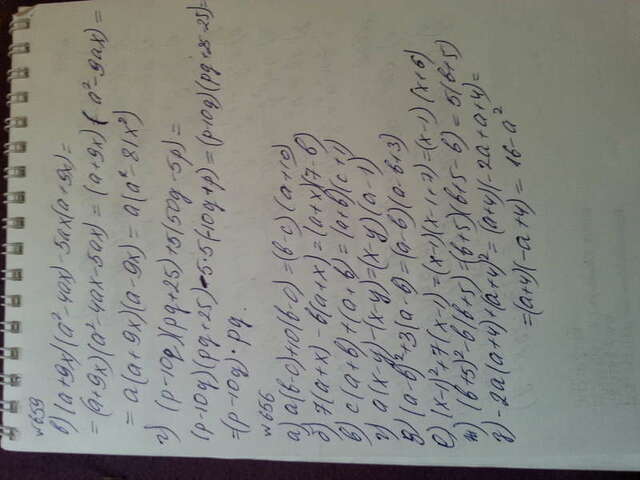 №659
в) (a+9x)(a²-4ax)-5ax(a+9x)=
=(a+9x)(a²-4ax-5ax)=(a+9x)(a²-9ax)=
=a(a+9x)(a-9x)=a(a²-81x²)
г) (p-10q)(pq+25)+5(50q-5p)=
(p-10q)(pq+25)-5·5(-10q+p)=(p-10q)(pq+25-25)=
=(p-10q)·pq.
№656
а) a(b-c)+10(b-c)=(b-c)(a+10)
б) 7(a+x)-b(a+x)=(a+x)(7-b)
в) c(a+b)+(a+b)=(a+b)(c+1)
г) a(x-y)-(x-y)=(x-y)(a-1)
д) (a-b)²+3(a-b)=(a-b)(a-b+3)
е) (x-1)²+7(x-1)=(x-1)(x-1+7)=(x-1)(x+6)
ж) (b+5)²-b(b+5)=(b+5)(b+5-b)=5(b+5)
з) -2a(a+4)+(a+4)²=(a+4)(-2a+a+4)=
=(a+4)(-a+4)=16-a²